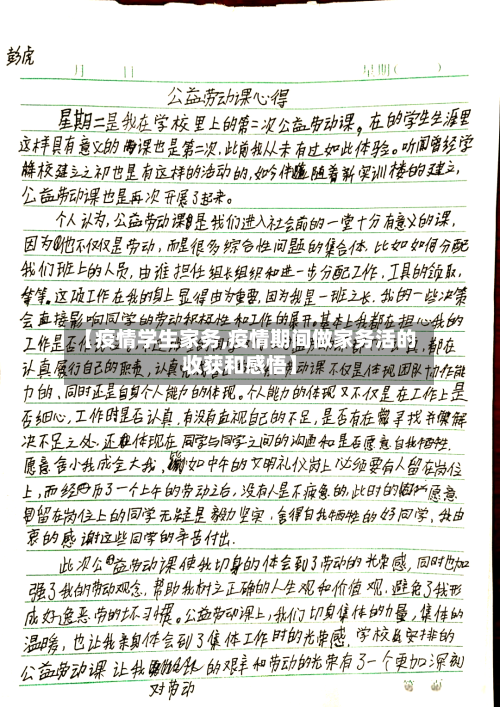 彭虎
月 日 星期( )
公益劳动课心得
星期二是我在学校里上的第二次公益劳动课。在的学生生涯里
这样具有意义的课也是第二次,此前我从未有过如此体验。听闻曾经学
校建立之初也是有这样的活动的,如今伴随着新实训楼的建立,
公益劳动课也是再次开展了起来。
个人认为,公益劳动课是我们进入社会前的一堂十分有意义的课,
因为他不仅仅是劳动,而是很多综合性问题的集合体,比如如何分配
我们班上的人员,由谁担任组长组织和进一步分配工作,工具的领取,
等等。这项工作在我的身上显得由为重要,因为我是一班之长,我的一些决策
会直接影响同学的劳动积极性和工作的开展。基本上我都在担心我的
【疫情学生家务,疫情期间做家务活的
收获和感悟】
认真履行自己的职责,认真
劳动课不仅是体现团队协作能
力的,同时还是自身个人能力的体现。个人能力的体现又不仅是在工作上是
否细心,工作时是否认真,有没有正视自己的不足,是否有在常寻找并解
决不足之处,还在体现在同学与同学之间的沟通和是否愿意自我牺牲,
愿意舍小我成全大我,如中午的文明礼仪岗上必须要有人留在岗位
上,而经历了一个上午的劳动之后,没有人是不疲惫的,此时的愿意
留在岗位上的同学无疑是毅力坚实,舍得自我牺牲的好同学,我由
衷的感谢这些同学的辛苦付出.
此次公益劳动课使我切身的体会到了劳动的光荣感,同时也加
强了我的劳动观念,帮助我树立正确的人生观和价值观,避免了我形
成好逸恶劳的坏习惯。公益劳动课上,我们切身集体的力量,集体的
温暖,也让我亲身体会到了集体工作时的光荣感,学校安排的
公益劳动课让我的艰辛和劳动的光荣有了一个更加深刻
对劳动